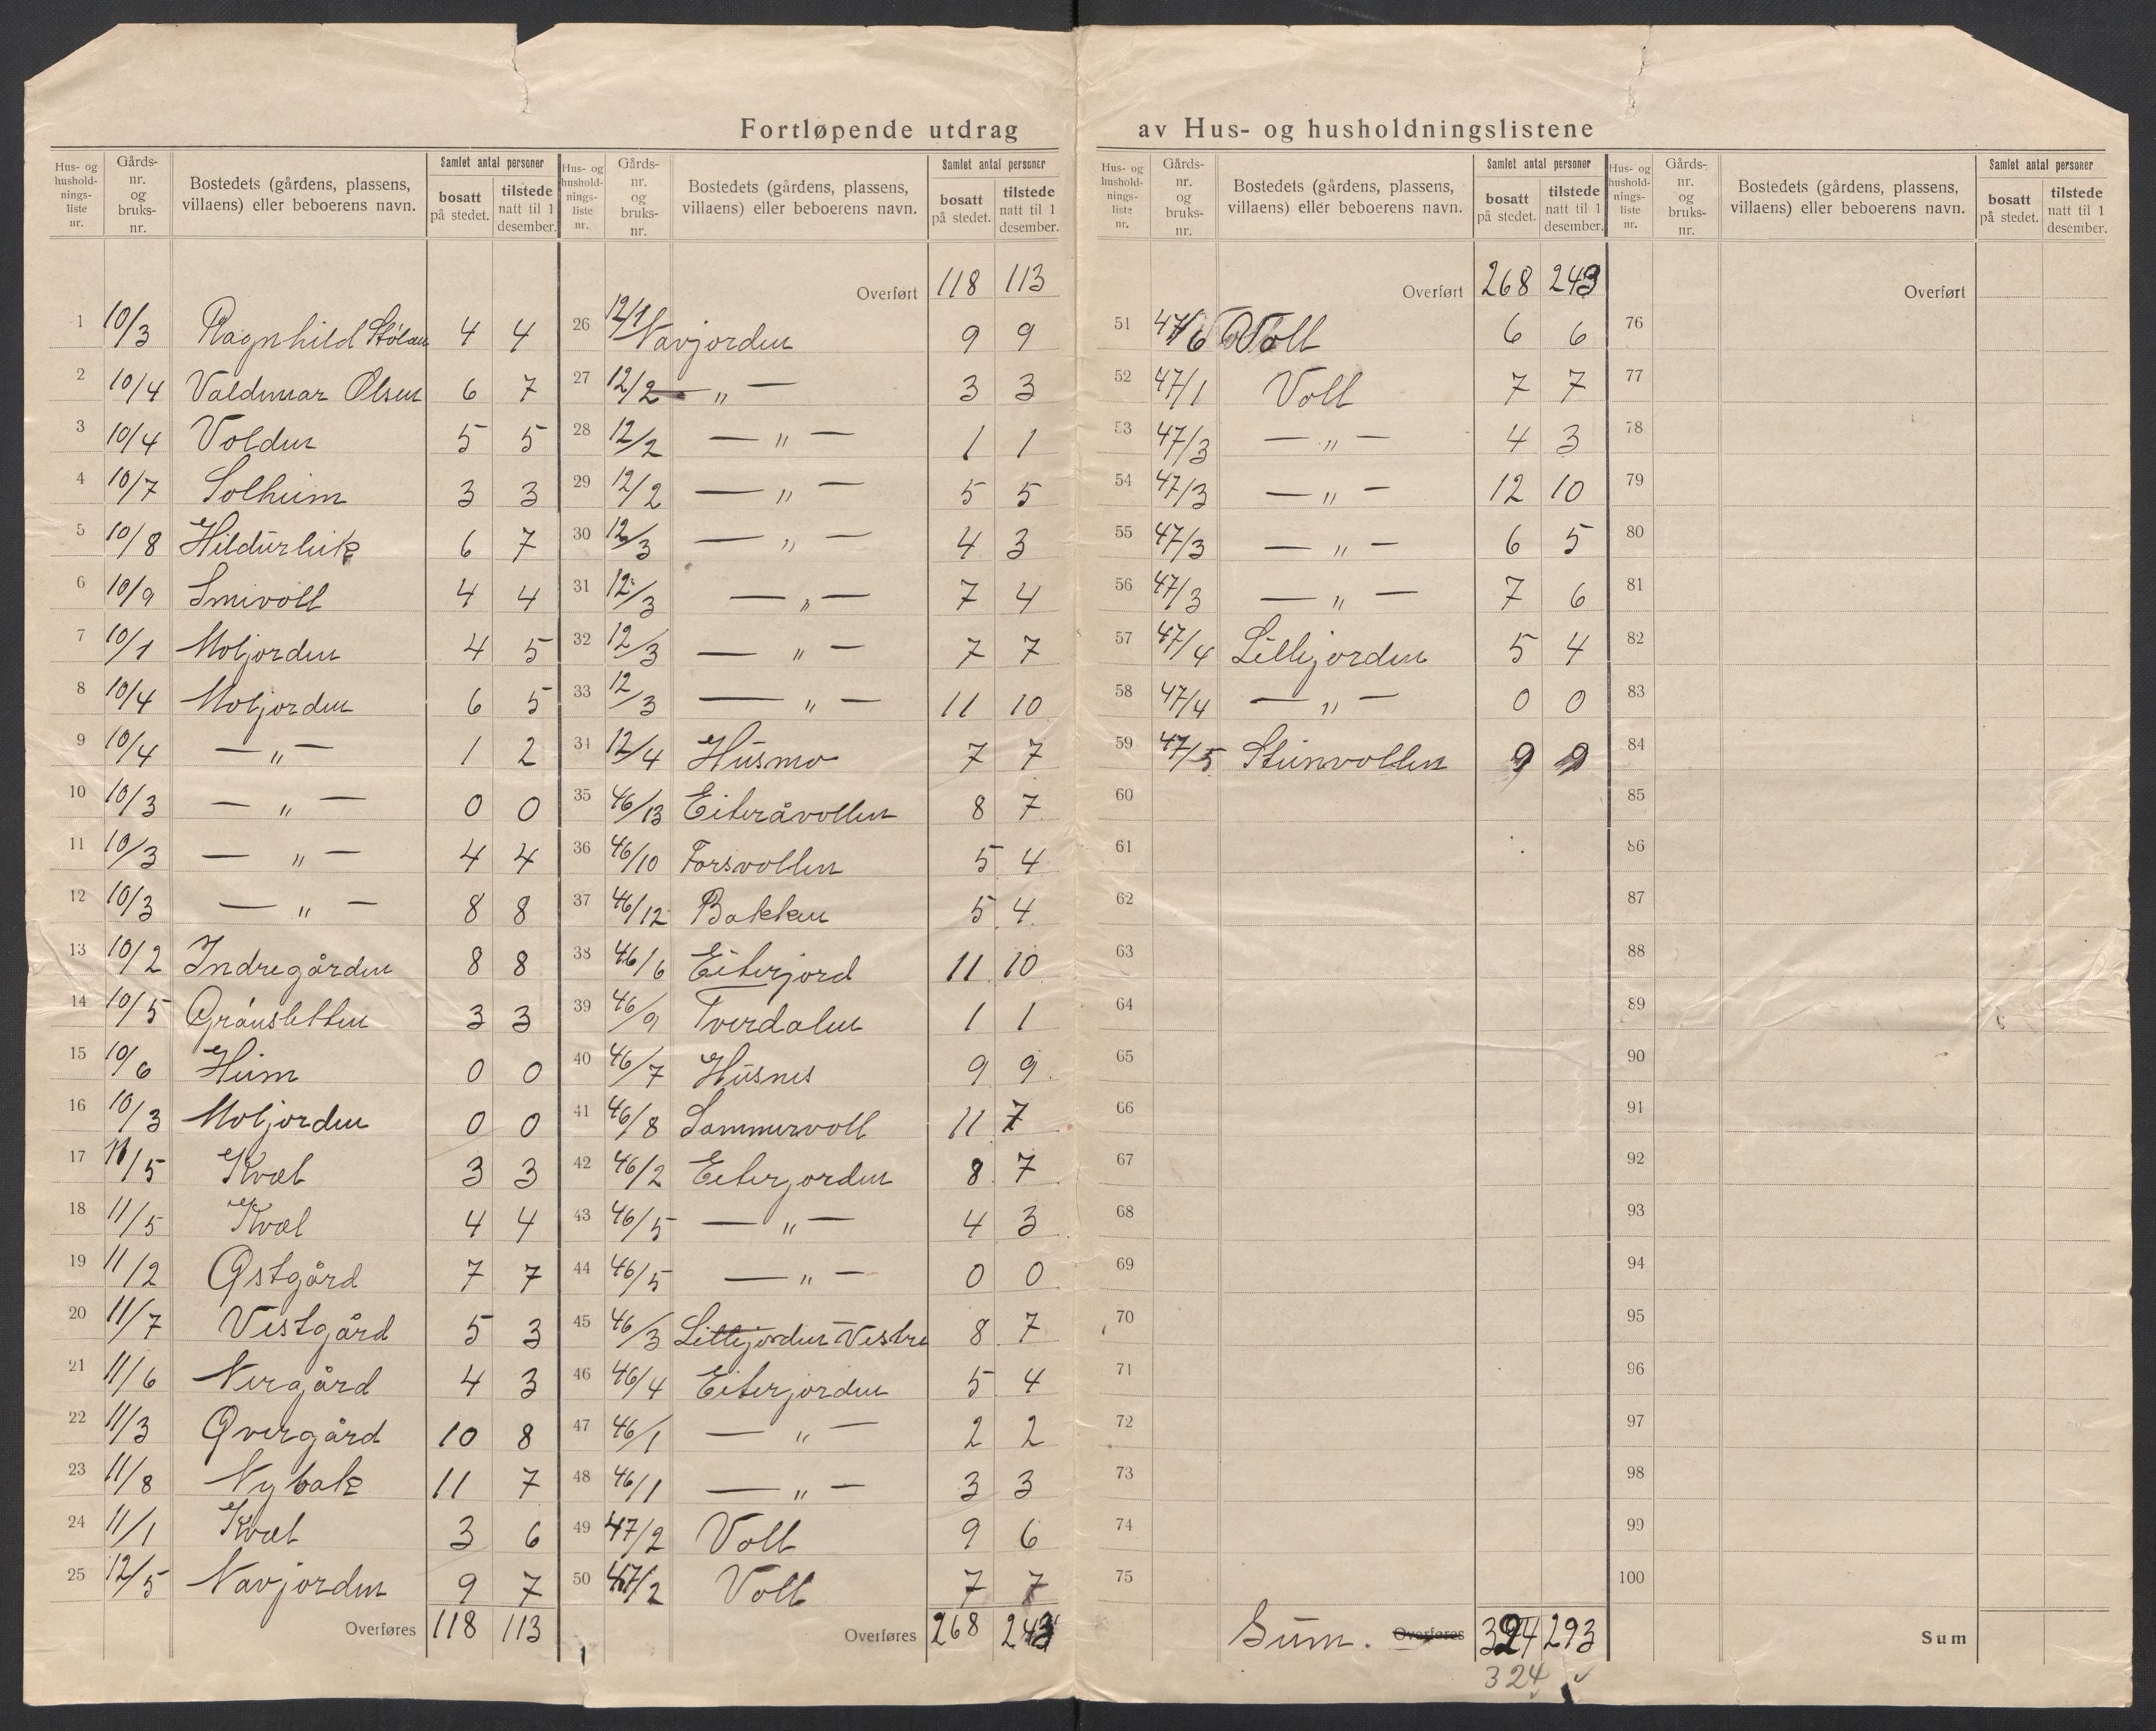 Fortløpende utdrag av Hus- og husholdningslistene
Hus- og husholdningsliste nr. | Gårds-nr. og bruks-nr. | Bostedets (gårdens, plassens, villaens) eller beboerens navn. | Samlet antal personer | bosatt på stedet. | tilstede natt til 1 desember.
1 10/3 Ragnhild Stølan 4 4
2 10/4 Valdemar Olsen 6 7
3 10/4 Volden 5 5
4 10/7 Solheim 3 3
5 10/8 Hildurleik 6 7
6 10/9 Smivoll 4 4
7 10/1 Moljorden 4 5
8 10/4 Moljorden 6 5
9 10/4 — „ — 1 2
10 10/3 — „ — 0 0
11 10/3 — „ — 4 4
12 10/3 — „ — 8 8
13 10/2 Indregården 8 8
14 10/5 Grånsletten 3 3
15 10/6 Heim 0 0
16 10/3 Moljorden 0 0
17 11/5 Kvæl 3 3
18 11/5 Kvæl 4 4
19 11/2 Østgård 7 7
20 11/7 Vestgård 5 3
21 11/6 Nergård 4 3
22 11/3 Øvergård 10 8
23 11/8 Nybak 11 7
24 11/1 Kvæl 3 6
25 12/5 Navjorden 9 7
Overføres 118 113
Hus- og husholdningsliste nr. | Gårds-nr. og bruks-nr. | Bostedets (gårdens, plassens, villaens) eller beboerens navn. | Samlet antal personer | bosatt på stedet. | tilstede natt til 1 desember.
Overført 118 113
26 12/1 Navjorden 9 9
27 12/2 — „ — 3 3
28 12/2 — „ — 1 1
29 12/2 — „ — 5 5
30 12/3 — „ — 4 3
31 12/3 — „ — 7 4
32 12/3 — „ — 7 7
33 12/3 — „ — 11 10
34 12/4 Husmo 7 7
35 46/13 Eiteråvollen 8 7
36 46/10 Forsvollen 5 4
37 46/12 Bakken 5 4
38 46/6 Eiterjord 11 10
39 46/9 Tverdalen 1 1
40 46/7 Husnes 9 9
41 46/8 Sommervoll 11 7
42 46/2 Eiterjorden 8 7
43 46/5 — „ — 4 3
44 46/5 — „ — 0 0
45 46/3 Lillejorden Vestre 8 7
46 46/4 Eiterjorden 5 4
47 46/1 — „ — 2 2
48 46/1 — „ — 3 3
49 47/2 Voll 9 6
50 47/2 Voll 7 7
Overføres 268 243
Hus- og husholdningsliste nr. | Gårds-nr. og bruks-nr. | Bostedets (gårdens, plassens, villaens) eller beboerens navn. | Samlet antal personer | bosatt på stedet. | tilstede natt til 1 desember.
Overført 268 243
51 47/6 Voll 6 6
52 47/1 Voll 7 7
53 47/3 — „ — 4 3
54 47/3 — „ — 12 10
55 47/3 — „ — 6 5
56 47/3 — „ — 7 6
57 47/4 Lillejorden 5 4
58 47/4 — „ — 0 0
59 47/5 Steinvollen 9 9
60
61
62
63
64
65
66
67
68
69
70
71
72
73
74
75
Sum. Overføres 324 293
324 ✓
Hus- og husholdningsliste nr. | Gårds-nr. og bruks-nr. | Bostedets (gårdens, plassens, villaens) eller beboerens navn. | Samlet antal personer | bosatt på stedet. | tilstede natt til 1 desember.
Overført
76
77
78
79
80
81
82
83
84
85
86
87
88
89
90
91
92
93
94
95
96
97
98
99
100
Sum